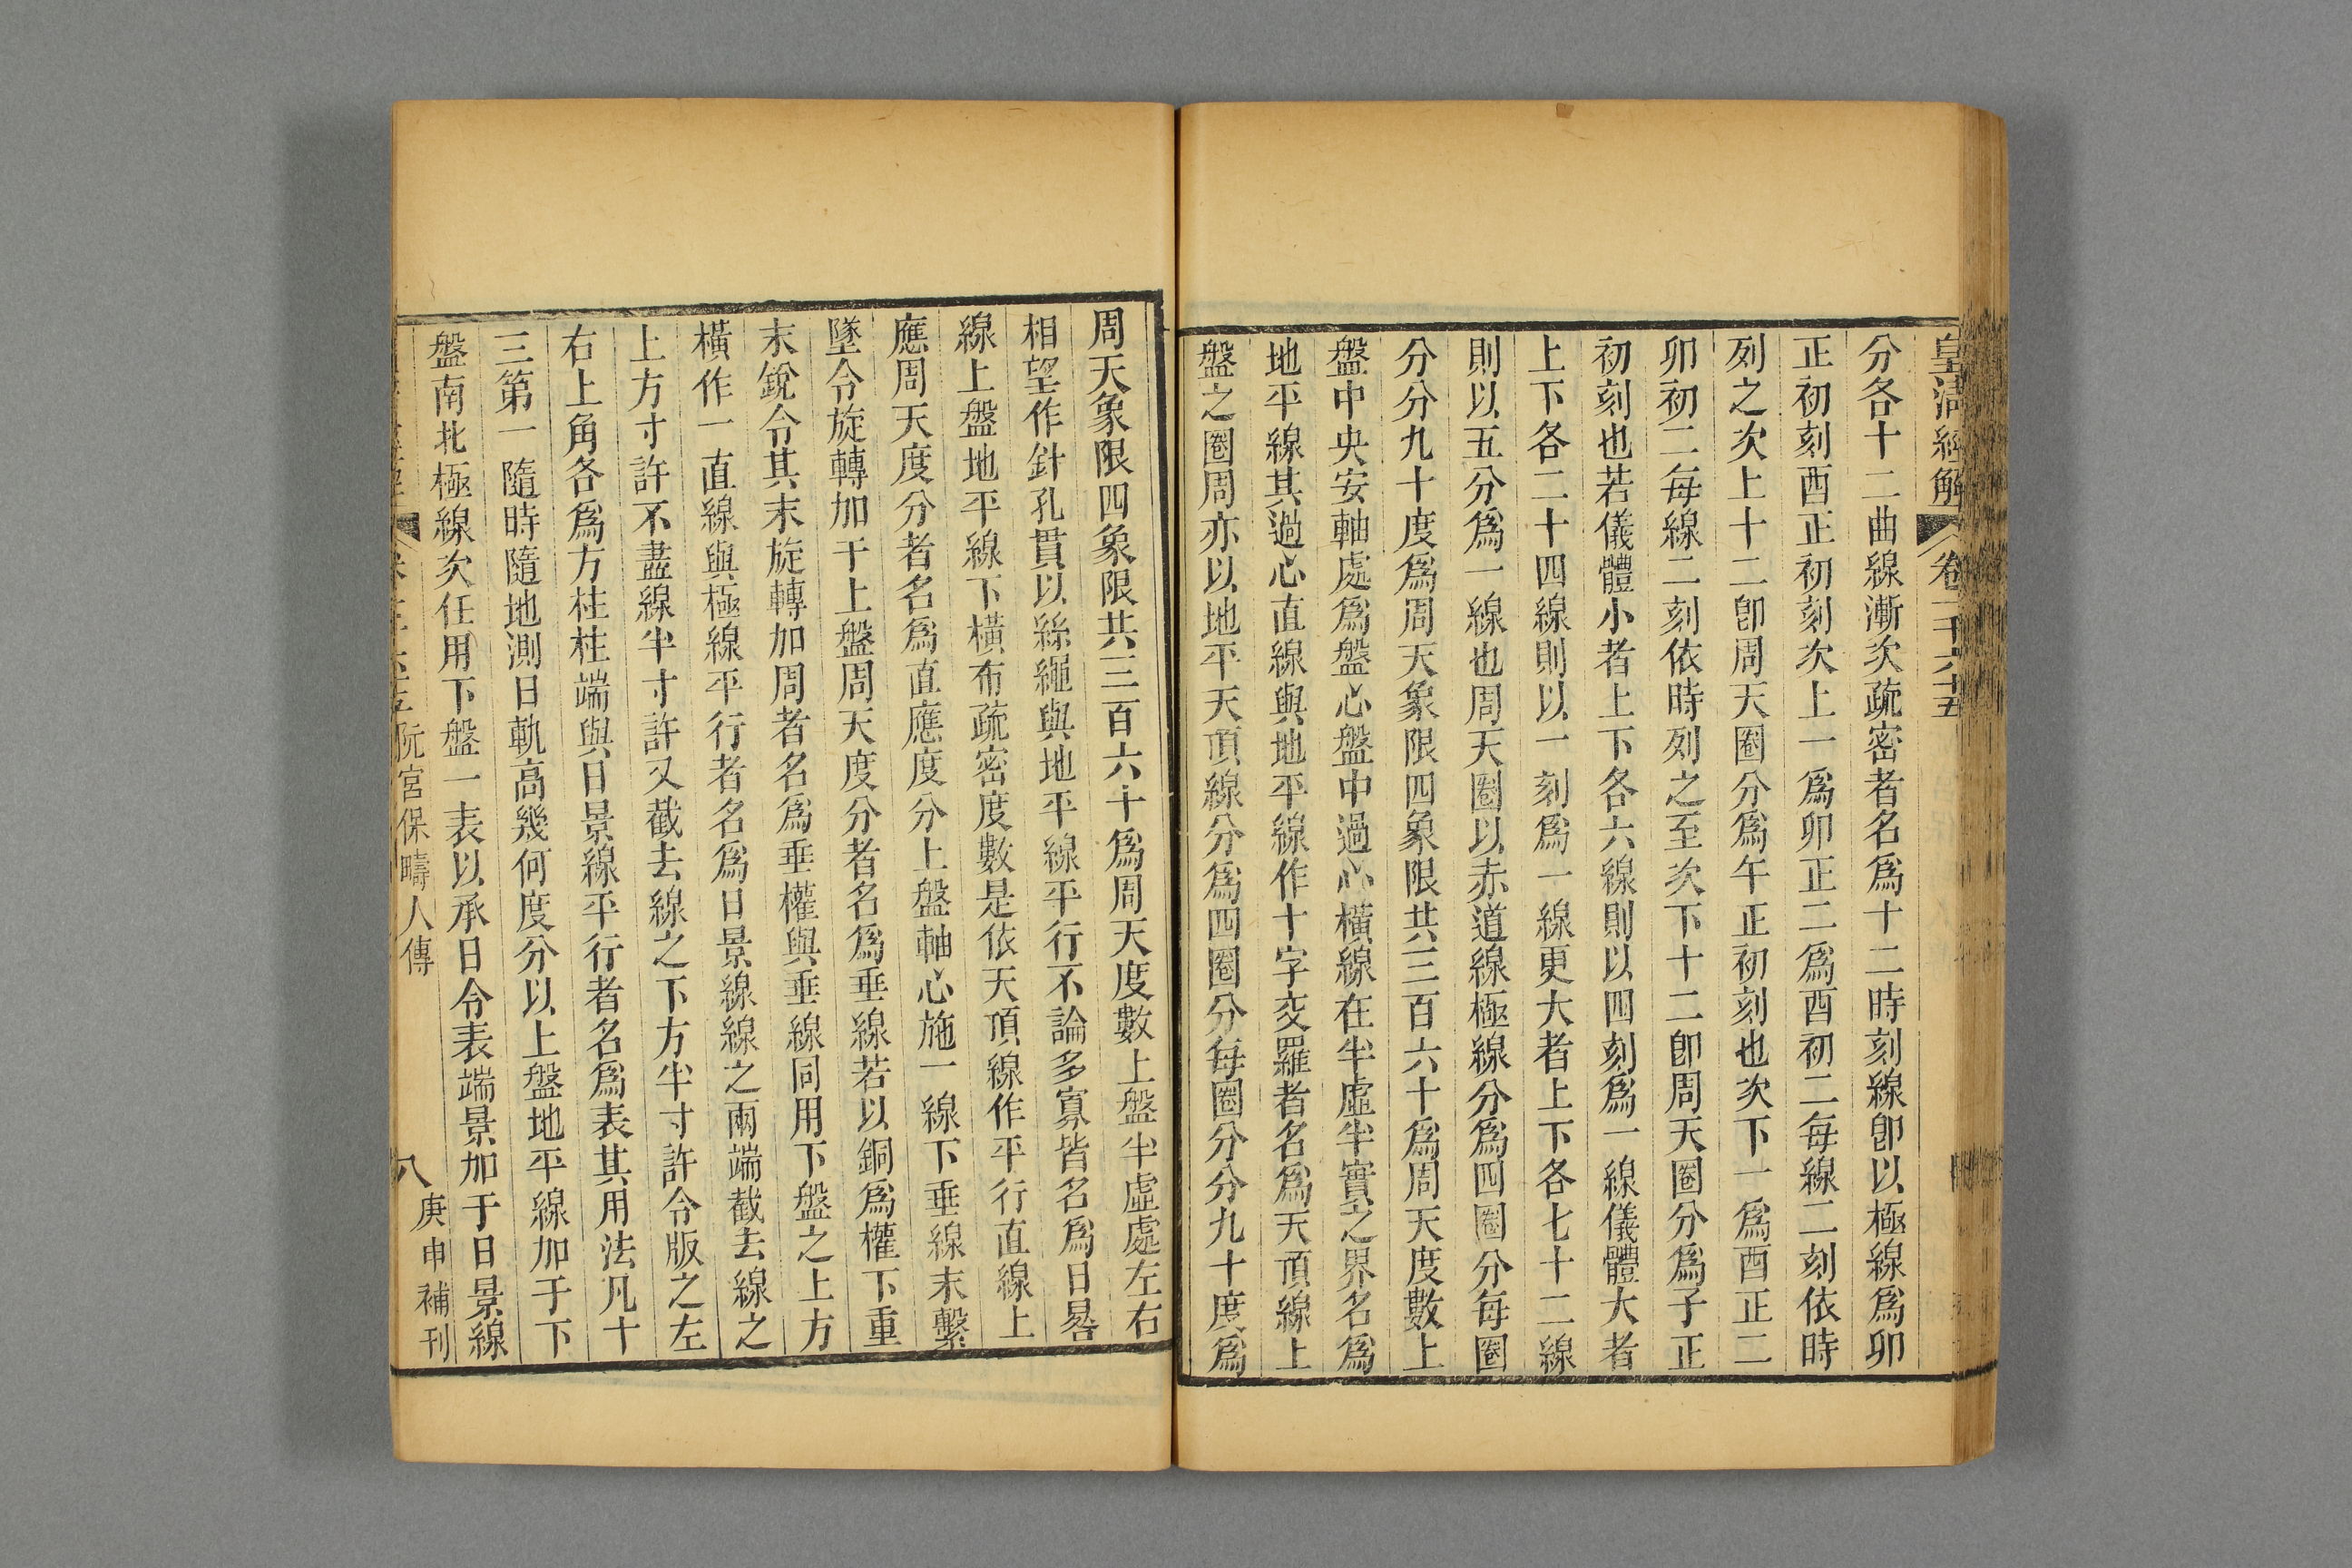 皇清經解 卷一千六十五
分各十二曲線漸次疏密者名爲十二時刻線卽以極線爲卯
正初刻酉正初刻次上一爲卯正二爲酉初二每線二刻依時
列之次上十二卽周天圈分爲午正初刻也次下一爲酉正二
卯初二每線二刻依時列之至次下十二卽周天圈分爲子正
初刻也若儀體小者上下各六線則以四刻爲一線儀體大者
上下各二十四線則以一刻爲一線更大者上下各七十二線
則以五分爲一線也周天圈以赤道線極線分爲四圈分每圈
分分九十度爲周天象限四象限共三百六十爲周天度數上
盤中央安軸處爲盤心盤中過心橫線在半虛半實之界名爲
地平線其過心直線與地平線作十字交羅者名爲天頂線上
盤之圈周亦以地平天頂線分爲四圈分每圈分分九十度爲
周天象限四象限共三百六十爲周天度數上盤半虛處左右
相望作針孔貫以絲繩與地平線平行不論多寡皆名爲日晷
線上盤地平線下橫布疏密度數是依天頂線作平行直線上
應周天度分者名爲直應度分上盤軸心施一線下垂線末繫
墜令旋轉加于上盤周天度分者名爲垂線若以銅爲權下重
末銳令其末旋轉加周者名爲垂權與垂線同用下盤之上方
橫作一直線與極線平行者名爲日景線線之兩端截去線之
上方寸許不盡線半寸許又截去線之下方半寸許令版之左
右上角各爲方柱柱端與日景線平行者名爲表其用法凡十
三第一隨時隨地測日軌高幾何度分以上盤地平線加于下
盤南北極線次任用下盤一表以承日令表端景加于日景線
阮宮保疇人傳 八 庚申補刊